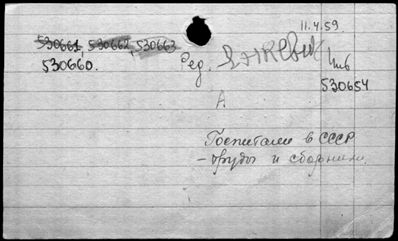 11.4.59.
530661, 530662, 530663
530660. Ред. Янкевич Инв
530654
А
Госпитали в СССР
- труды и сборники